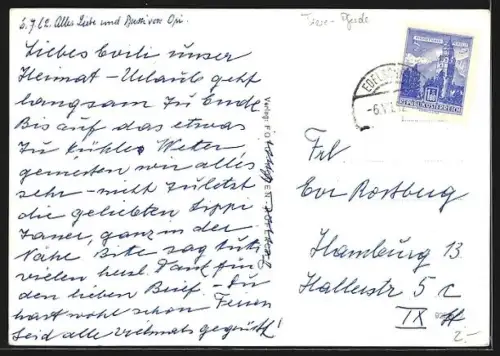 6.7.62. Alles Liebe und Bussi von Opi
Liebes Evili unser
Heimat-Urlaub geht
langsam zu Ende.
Bis auf das etwas
zu kühle Wetter
genießen wir alles
sehr - nicht zuletzt
die geliebten Lippi
zaner, ganz in der
Nähe Bitte sag tüti
vielen herzl. Dank für
den lieben Brief. Du
hast wohl schon Ferien
Seid alle vielmals gegrüßt!
Verlag:
EDELS
REPUBLIK ÖSTERREICH
Frl
Eva Rostberg
Hamburg 13
Hallerstr 5 c
IX
2.-